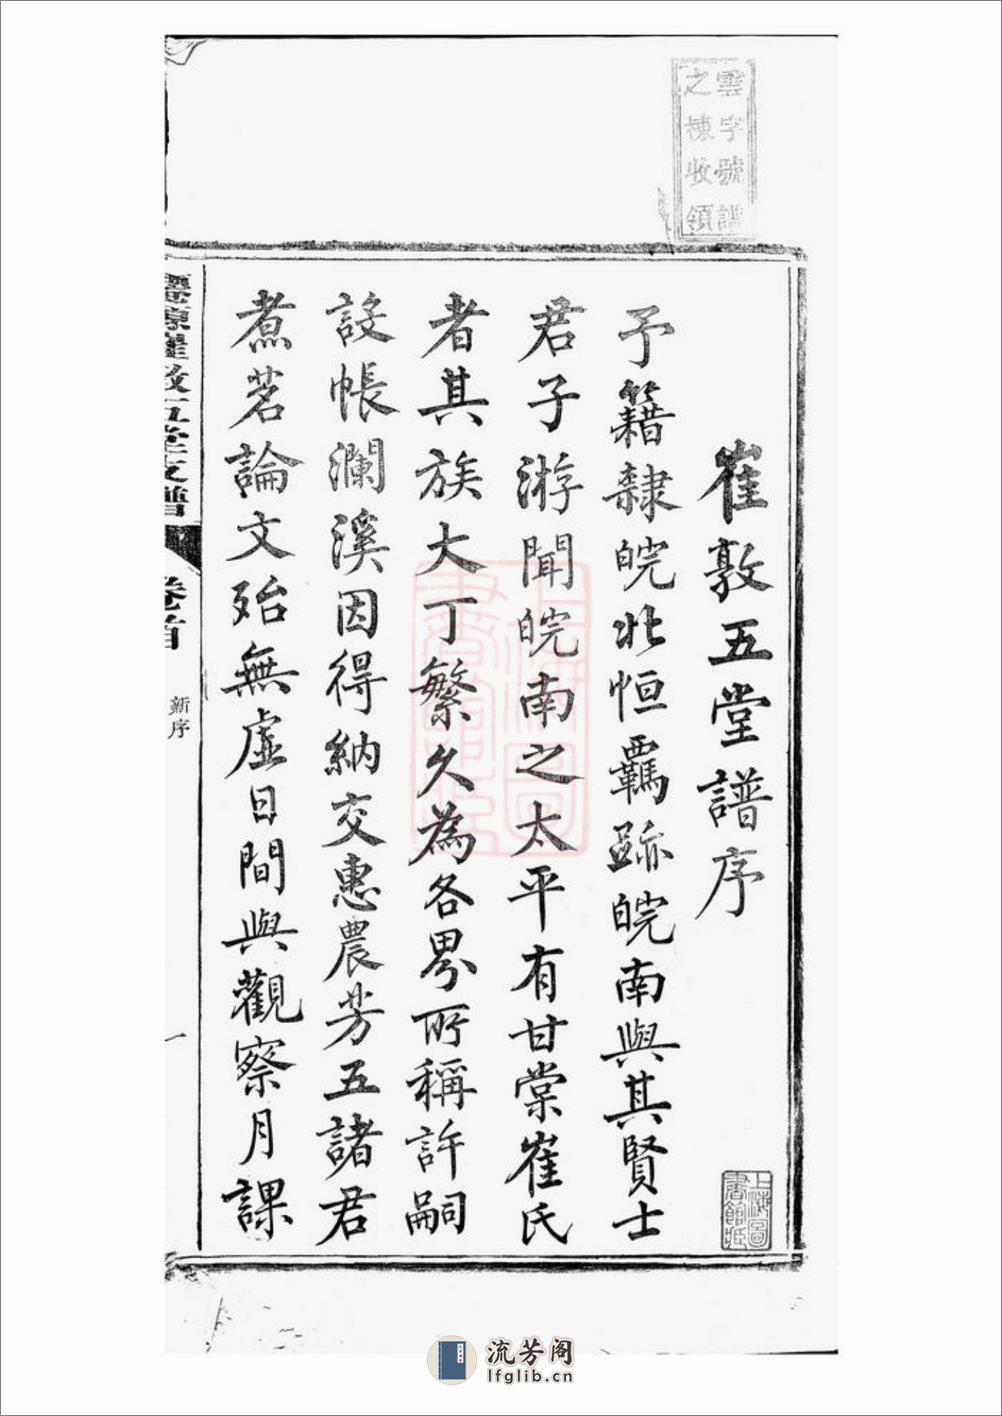 雲字號譜
之棟收領
崔敦五堂譜序
予籍隸皖北恒羈跡皖南與其賢士
君子游聞皖南之太平有甘棠崔氏
者其族大丁繁久為各界所稱許嗣
設帳瀾溪因得納交惠農芳五諸君
煮茗論文殆無虛日間與觀察月課
崔敦五堂支譜
卷首
新序
一
上海圖書館藏
上海圖書館藏
流芳阁
lfglib.cn